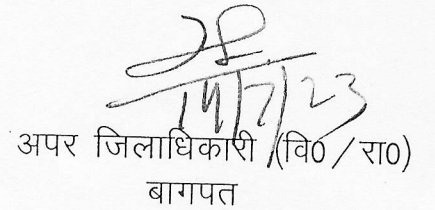 14/7/23
अपर जिलाधिकारी (वि0/रा0)
बागपत